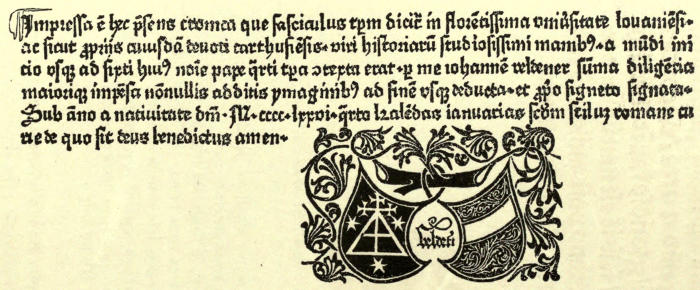 Impressa ē hec p̄sens cronica que fasciculus tp̄m dicit̄ in florētissima vniūsitate louaniēsi·
ac sicut ꝓprijs cuiusdā deuoti carthusiēsis· viri historiarū studiosissimi manibꝰ· a mūdi ini
cio vsqꝫ ad sixti huiꝰ noīe pape q̄rti tp̄a ↄtexta erat· ꝑ me iohannē veldener sūma diligētia
maioriqꝫ impēsa nōnullis additis ymaginibꝰ ad finē vsqꝫ deducta· et ꝓp̄o signeto signata·
Sub āno a natiuitate dn̄i· M· cccc· lxxvi· q̄rto kalēdas ianuarias scd̄m stiluꝫ romane cu
rie de quo sit deus benedictus amen·